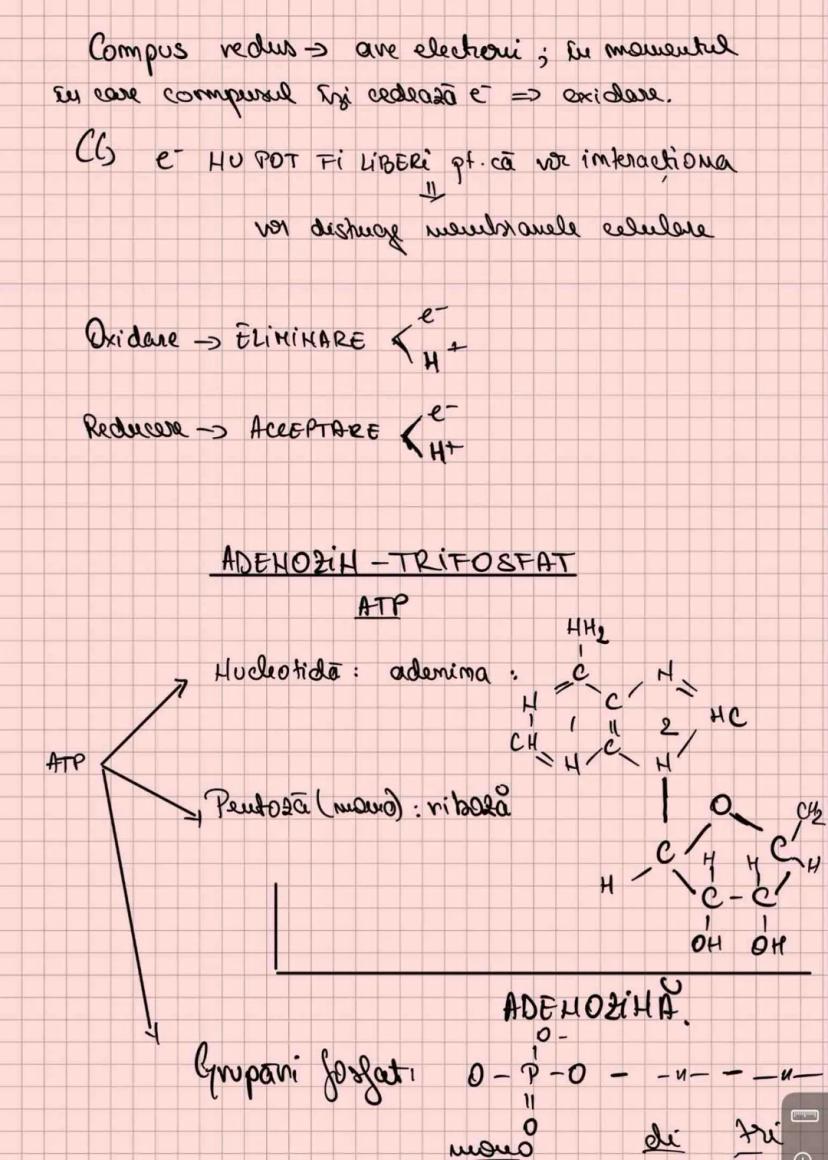 Compus redus → are electroni ; în momentul
în care compusul își cedează e⁻ ⇒ oxidare.
e⁻ NU POT FI LIBERI pt. că vor interacționa
⇓
vor distruge membranele celulare
Oxidare → ELIMINARE < e⁻
H⁺
Reducere → ACCEPTARE < e⁻
H+
ADENOZIN - TRIFOSFAT
ATP
NH₂
Nucleotidă : adenina :
C N
N C
1 || 2 HC
CH C
N N
ATP
Pentoză (mono) : riboză
O CH₂
C C
H H H H
C - C
OH OH
ADENOZINĂ.
O -
Grupări fosfat: O - P - O - -"- - -"-
||
O
mono di tri